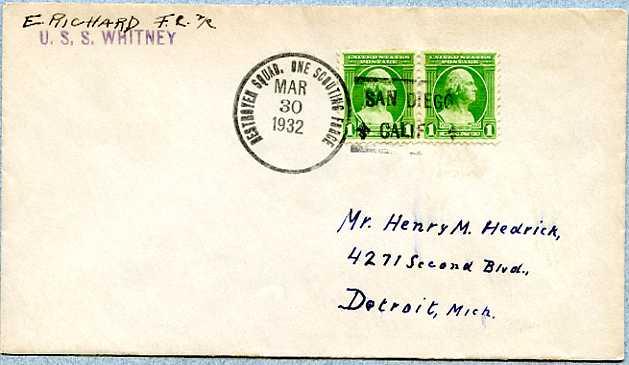 E. RICHARD F.C. 3/c
U. S. S. WHITNEY
DESTROYER SQUAD. ONE SCOUTING FORCE
MAR
30
1932
UNITED STATES POSTAGE
UNITED STATES POSTAGE
SAN DIEGO
CALIF
1 1
1 1
Mr. Henry M. Hedrick,
4271 Second Blvd.,
Detroit, Mich.